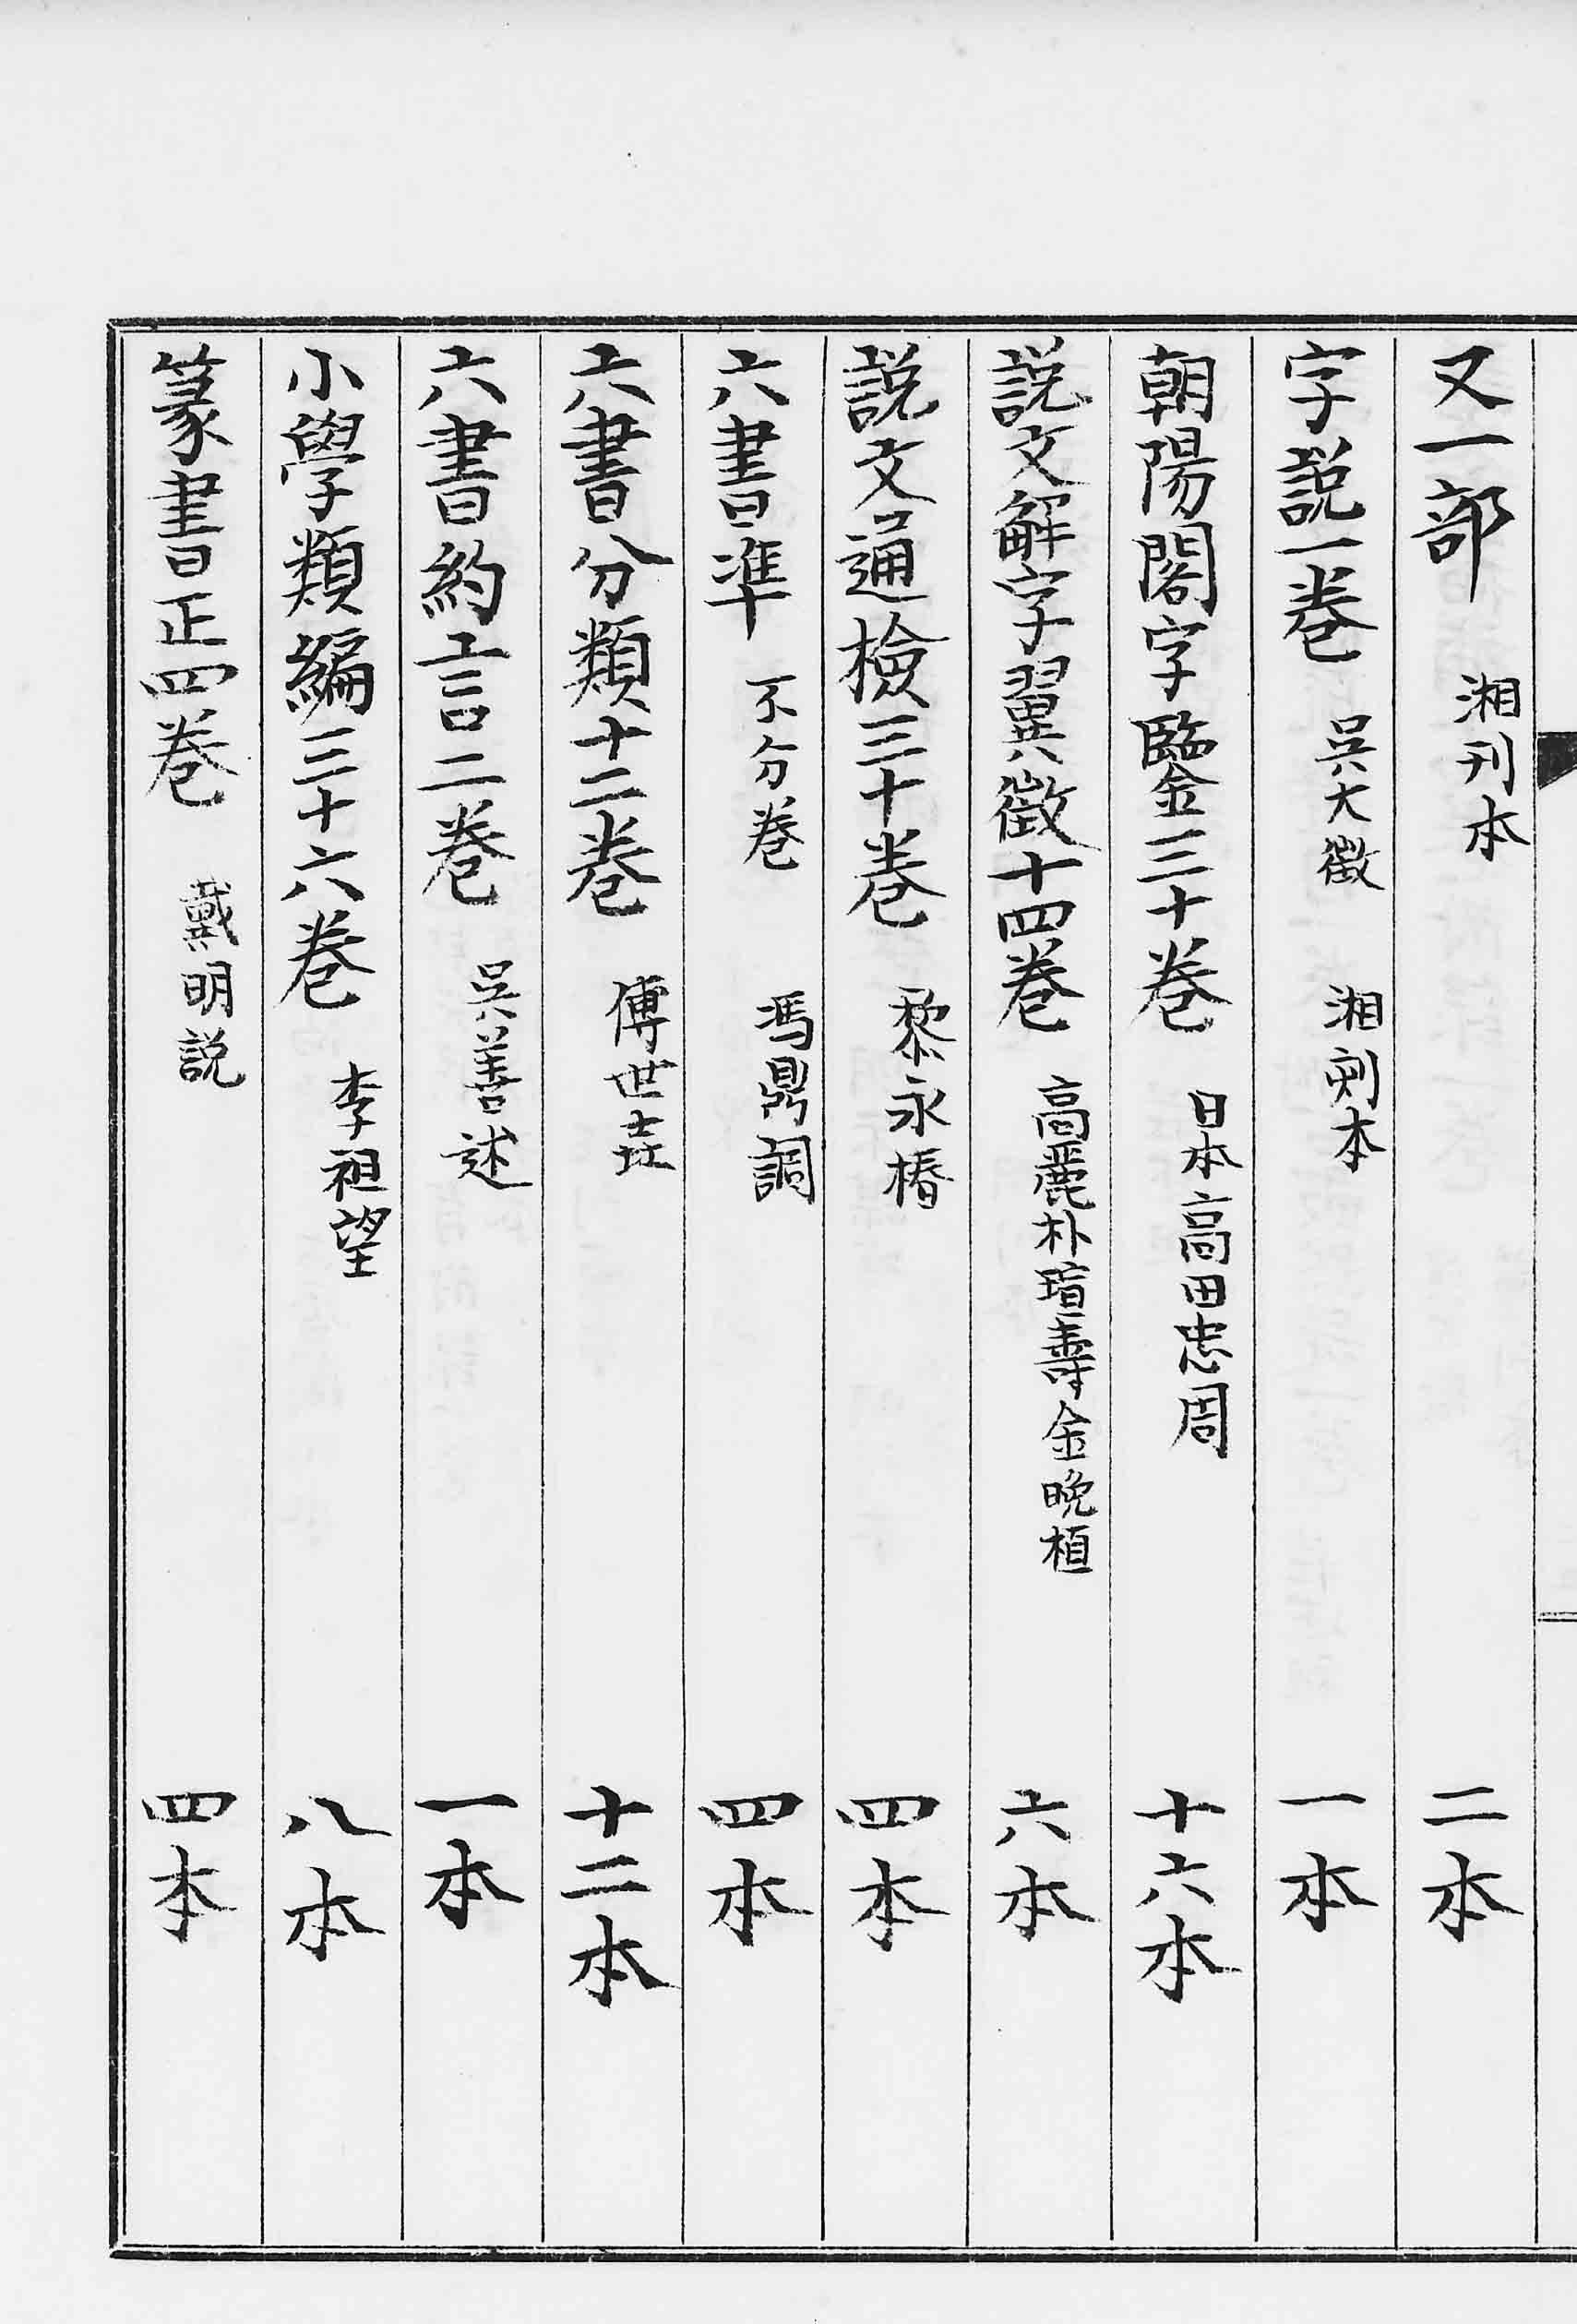 又一部 湘刊本 二本
字説一卷 吳大澂 湘刻本 一本
朝陽閣字鑒三十卷 日本高田忠周 十六本
説文解字翼徵十四卷 高麗朴瑄壽金晚植 六本
説文通檢三十卷 黎永椿 四本
六書準 不分卷 馮鼎調 四本
六書分類十二卷 傅世垚 十二本
六書約言二卷 吳善述 一本
小學類編三十六卷 李祖望 八本
篆書正四卷 戴明説 四本